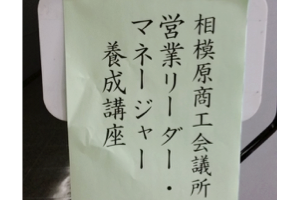 相模原商工会議所
営業リーダー・
マネージャー
養成講座